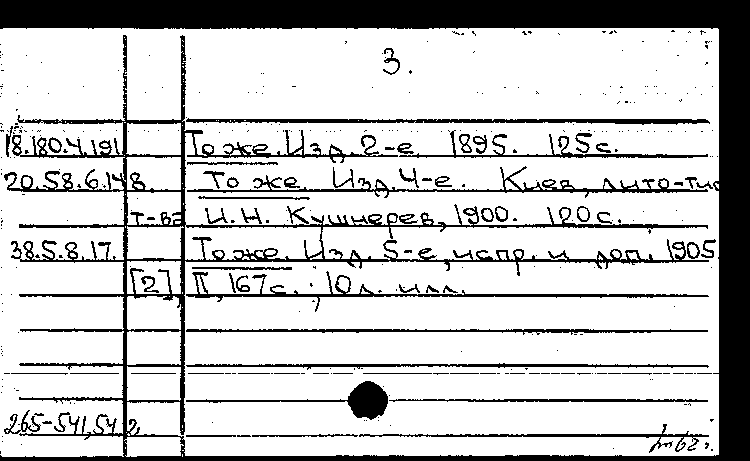 3.
18.180.4.191 То же. Изд. 2-е. 1895. 125 с.
20.58.6.148. То же. Изд. 4-е. Киев, лито-тип
т-ва И.Н. Кушнерев, 1900. 120 с.
38.5.8.17. То же. Изд. 5-е, испр. и доп. 1905
[2], II, 167 с.; 10 л. илл.
265-541,54 г.